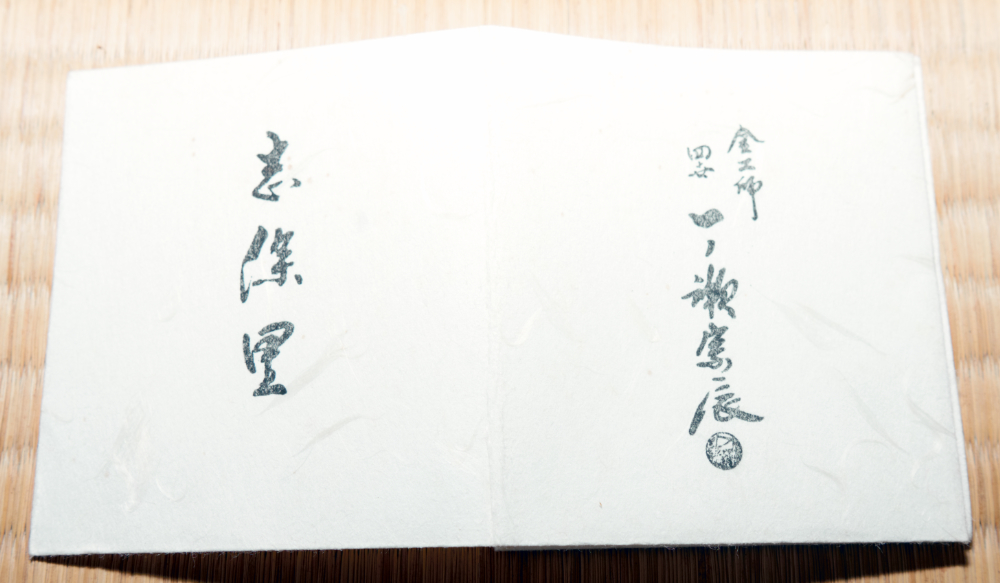 金工師
四世
一ノ瀬宗辰
志保里